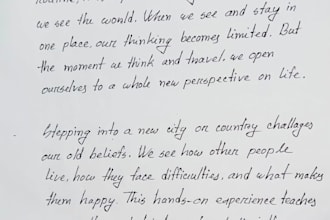 we see the world. When we see and stay in
one place, our thinking becomes limited. But
the moment we think and travel, we open
ourselves to a whole new perspective on life.
Stepping into a new city or country challages
our old beliefs. We see how other people
live, how they face difficulties, and what makes
them happy. This hands-on experience teaches